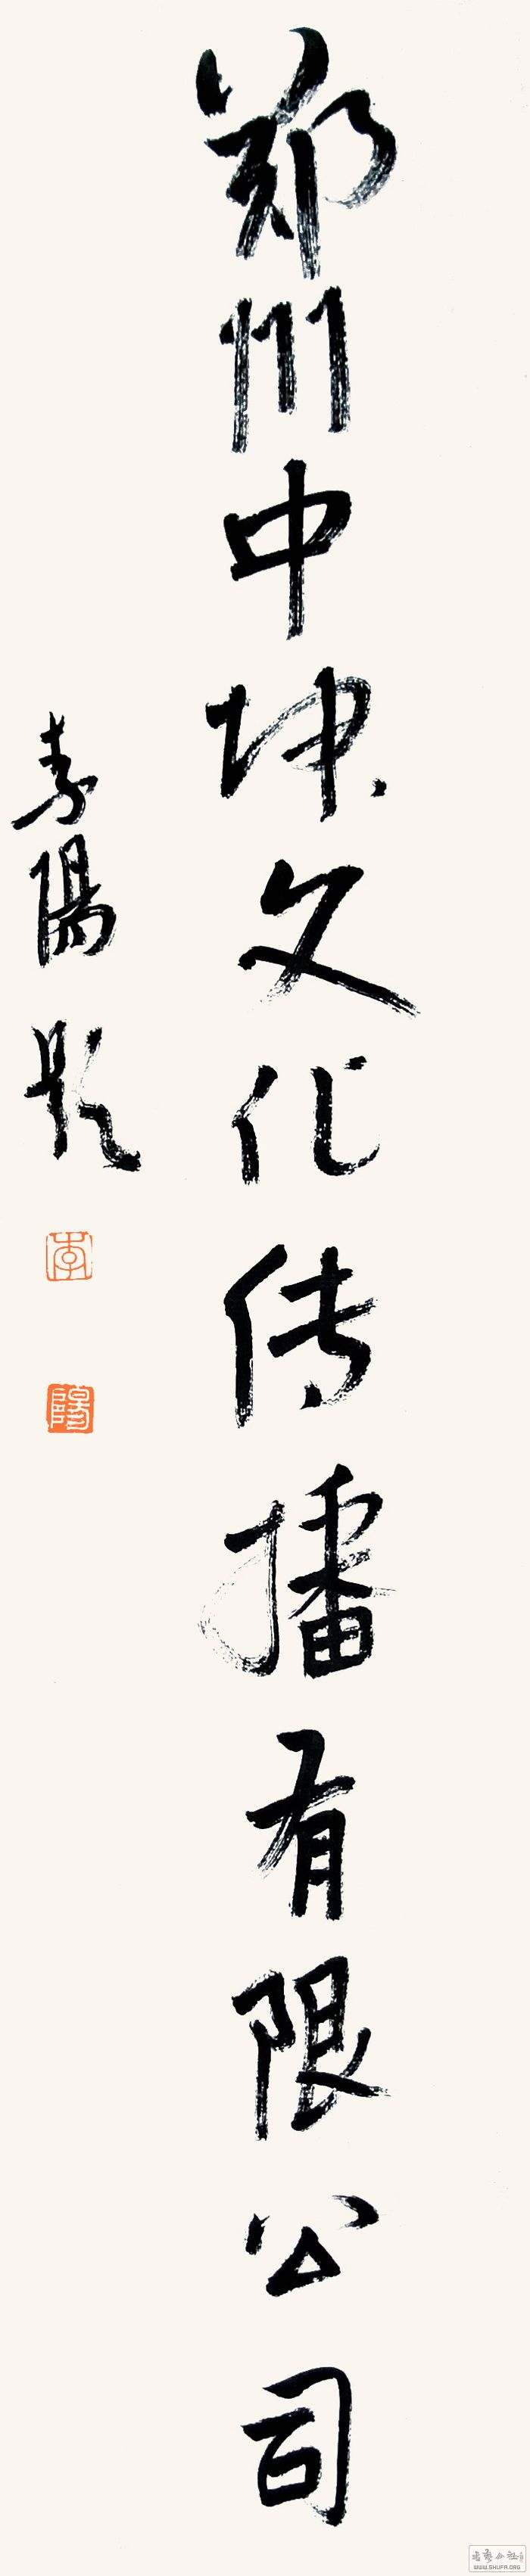 郑州中坤文化传播有限公司
李陽题
李
陽
书艺公社
WWW.SHUFA.ORG